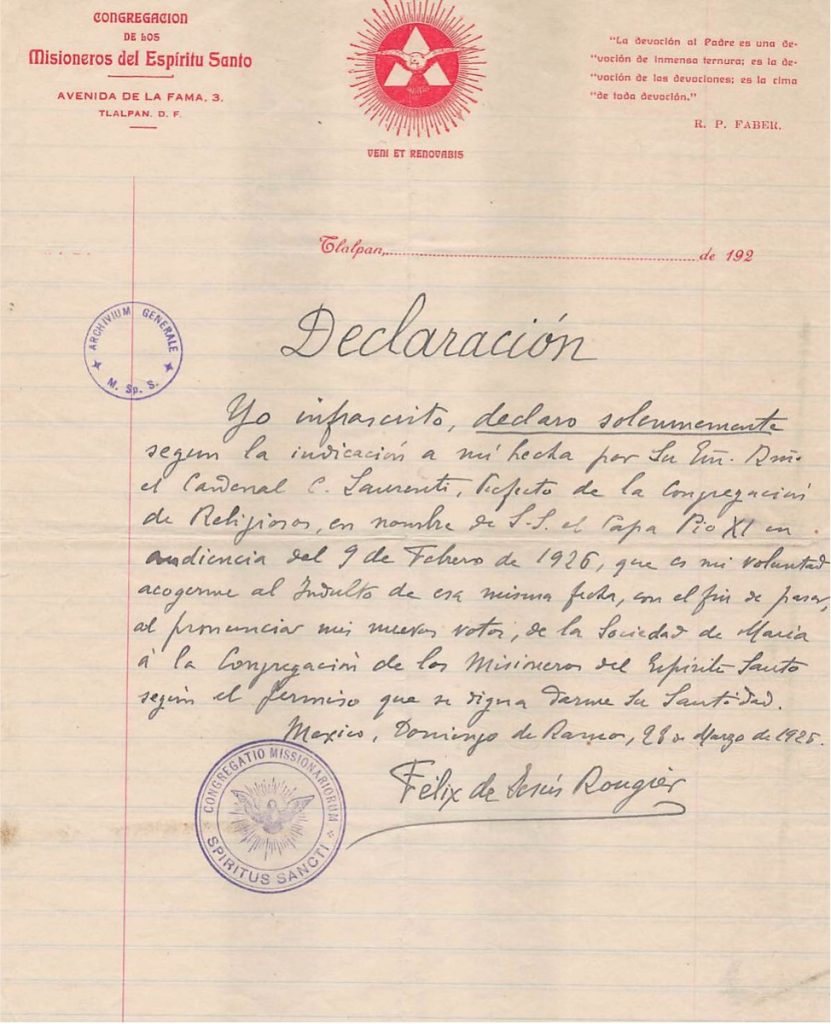 CONGREGACION
DE LOS
Misioneros del Espíritu Santo
AVENIDA DE LA FAMA, 3.
TLALPAN. D. F.
VENI ET RENOVABIS
"La devoción al Padre es una de-
"voción de inmensa ternura; es la de-
"voción de las devociones; es la cima
"de toda devoción."
R. P. FABER.
Tlalpan, de 192
ARCHIVIUM GENERALE
M. Sp. S.
Declaración
Yo infrascrito, declaro solemnemente
segun la indicación a mi hecha por Su Em. Rma.
el Cardenal C. Laurenti, Prefecto de la Congregación
de Religiosos, en nombre de S.S. el Papa Pio XI en
audiencia del 9 de Febrero de 1926, que es mi voluntad
acogerme al Indulto de esa misma fecha, con el fin de pasar,
al pronunciar mis nuevos votos, de la Sociedad de María
á la Congregación de los Misioneros del Espíritu Santo
según el permiso que se digna darme Su Santidad.
Mexico, Domingo de Ramos, 28 de Marzo de 1926.
Félix de Jesús Rougier
CONGREGATIO MISSIONARIORUM
SPIRITUS SANCTI